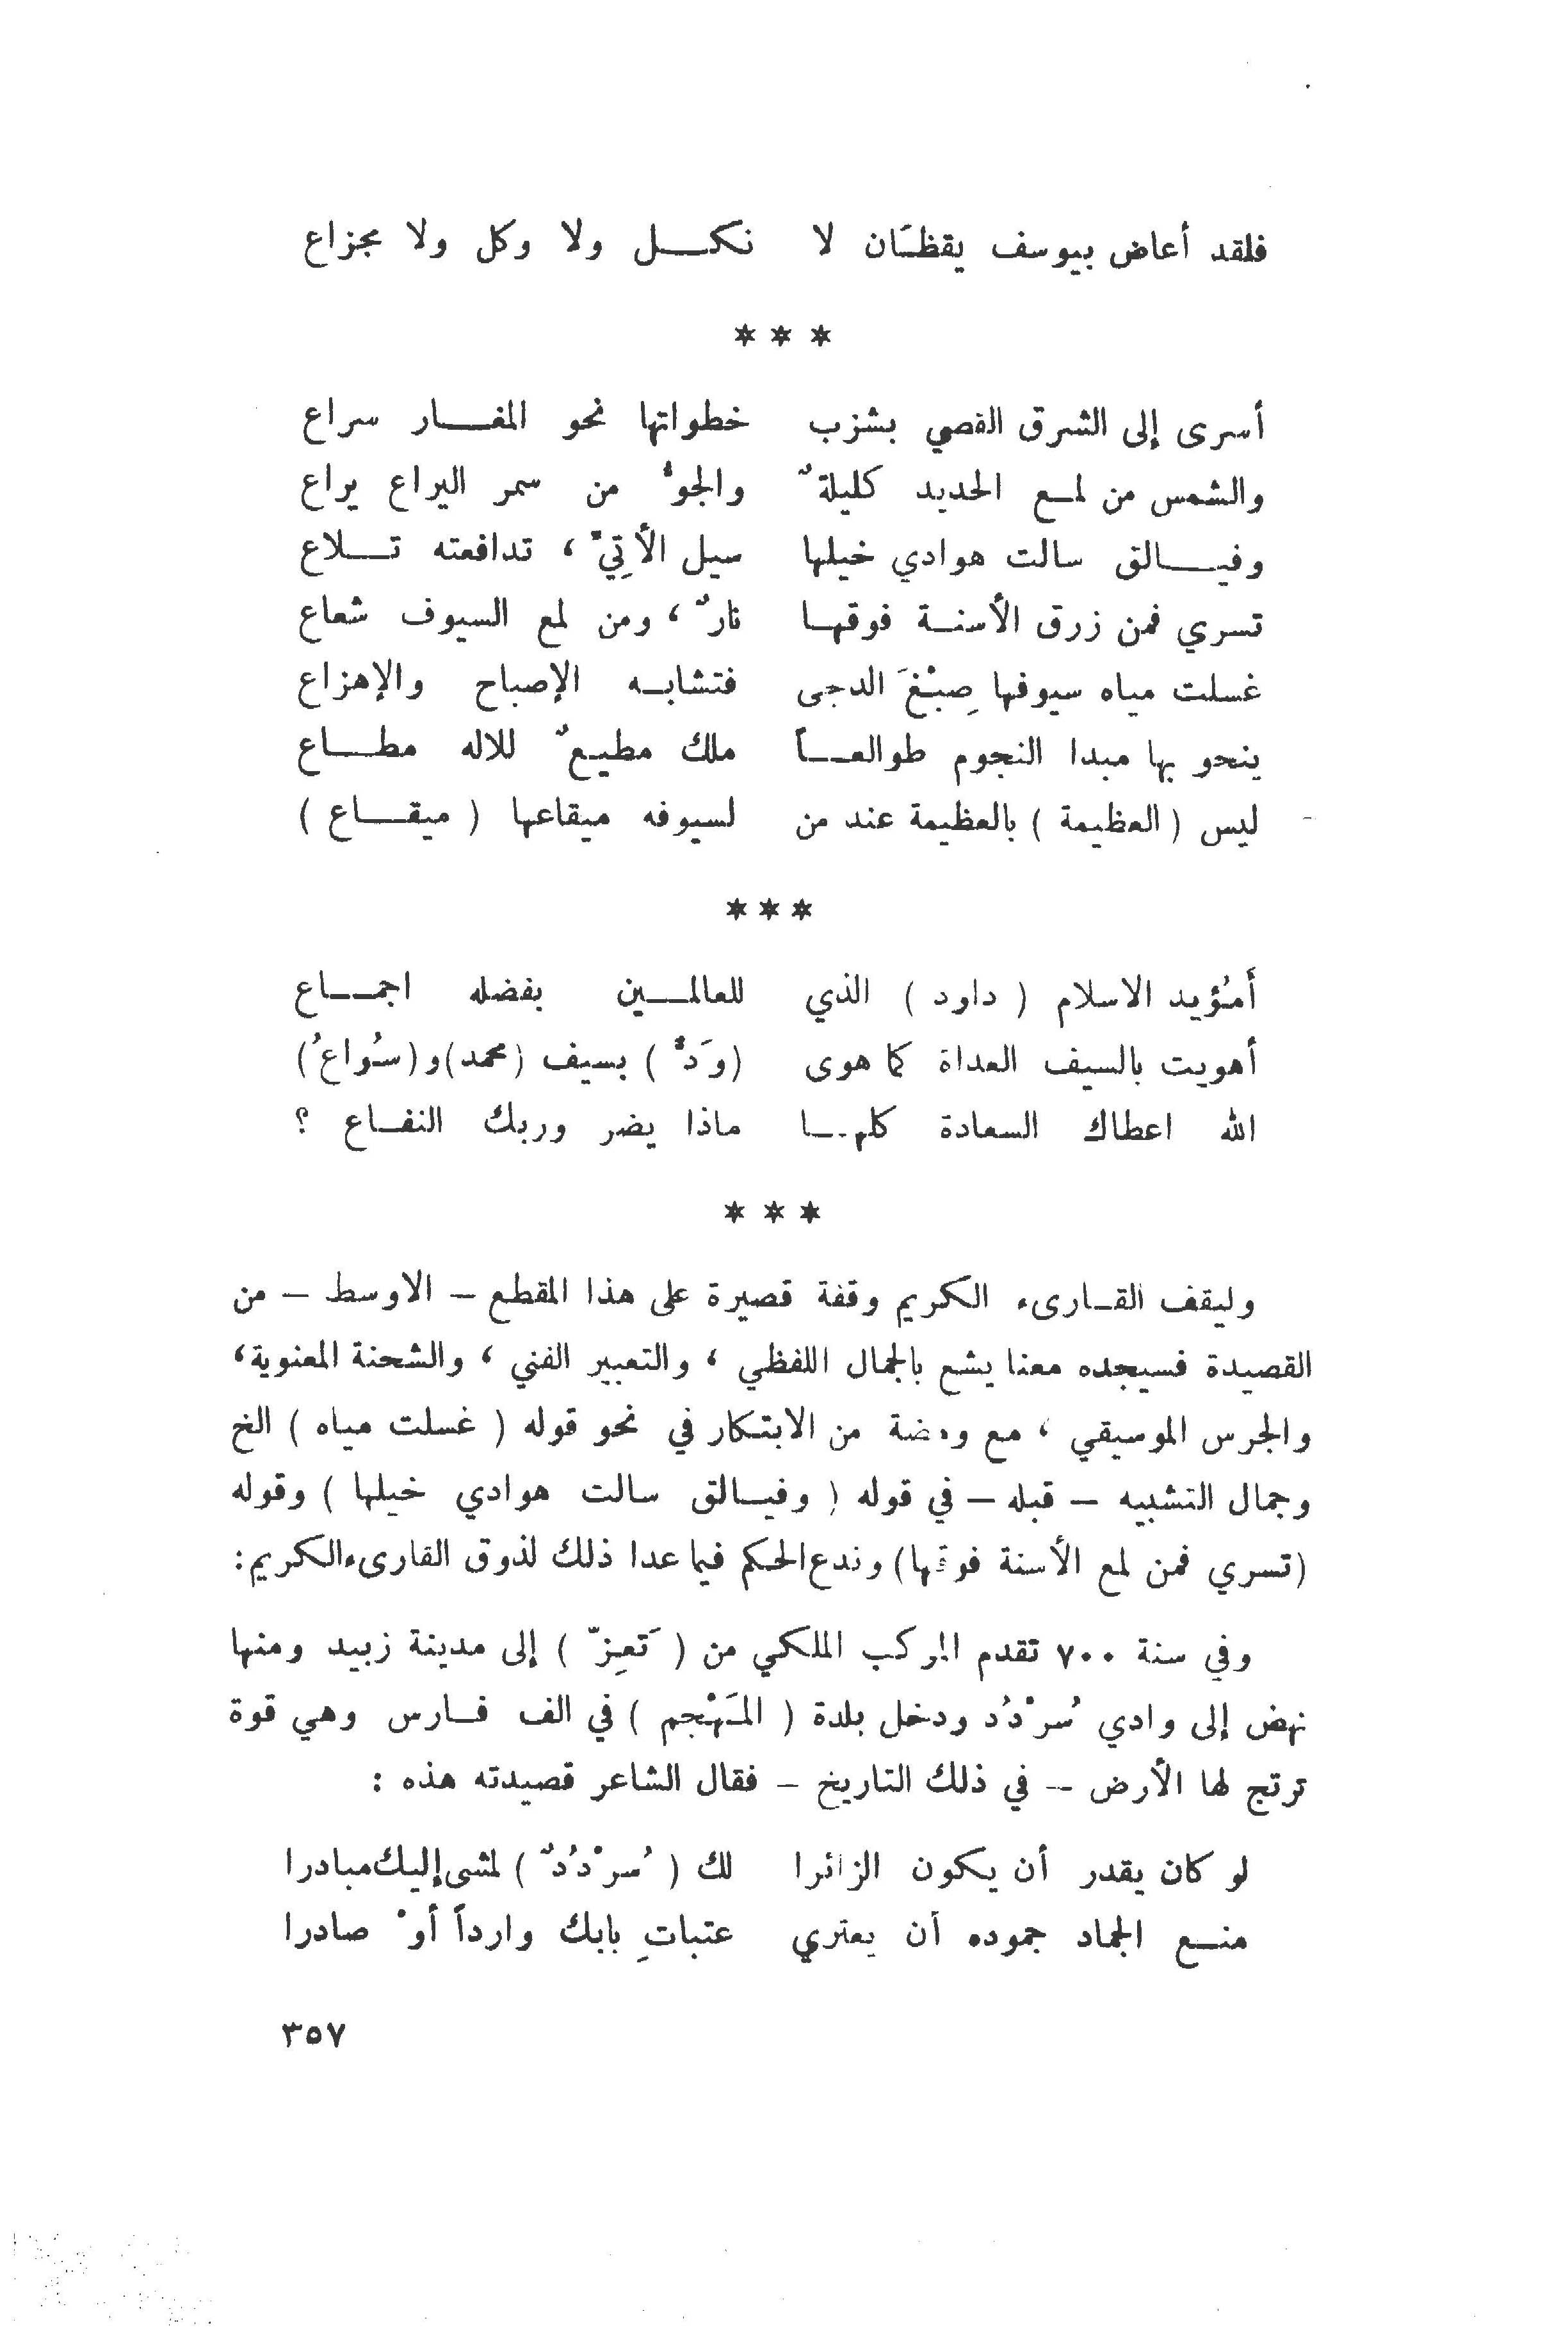 فلقد أعاض بيوسف يقظَان لا نكل ولا وكل ولا مجزاع
* * *
أسرى إلى الشرق القصي بشزب خطواتها نحو المغار سراع
والشمس من لمع الحديد كليلةٌ والجوُّ من سمر اليراع يراع
وفيالق سالت هوادي خيلها سيل الأتِيّ ، تدافعته تلاع
تسري فمن زرق الأسنة فوقها نارٌ ، ومن لمع السيوف شعاع
غسلت مياه سيوفها صِبْغَ الدجى فتشابه الإصباح والإهزاع
ينحو بها مبدا النجوم طوالعاً ملك مطيعٌ للاله مطاع
ليس ( العظيمة ) بالعظيمة عند من لسيوفه ميقاعها ( ميقاع )
* * *
أمُؤيد الاسلام ( داود ) الذي للعالمين بفضله اجماع
أهويت بالسيف العداة كما هوى (وَدُّ ) بسيف (محمد) و(سُواعُ)
الله اعطاك السعادة كلها ماذا يضر وربك النفاع ؟
* * *
وليقف القارىء الكريم وقفة قصيرة على هذا المقطع – الاوسط – من
القصيدة فسيجده معنا يشع بالجمال اللفظي ، والتعبير الفني ، والشحنة المعنوية،
والجرس الموسيقي ، مع ومضة من الابتكار في نحو قوله ( غسلت مياه ) الخ
وجمال التشبيه – قبله – في قوله ( وفيالق سالت هوادي خيلها ) وقوله
(تسري فمن لمع الأسنة فوقها) وندع الحكم فيما عدا ذلك لذوق القارىء الكريم:
وفي سنة ٧٠٠ تقدم الموكب الملكي من ( تَعِزّ ) إلى مدينة زبيد ومنها
نهض إلى وادي سُرْدُد ودخل بلدة ( المَهْجم ) في الف فارس وهي قوة
ترتج لها الأرض – في ذلك التاريخ – فقال الشاعر قصيدته هذه :
لو كان يقدر أن يكون الزائرا لك ( سُرْدُدٌ ) لمشى إليك مبادرا
منع الجماد جموده أن يعتري عتباتِ بابك وارداً أوْ صادرا
٣٥٧